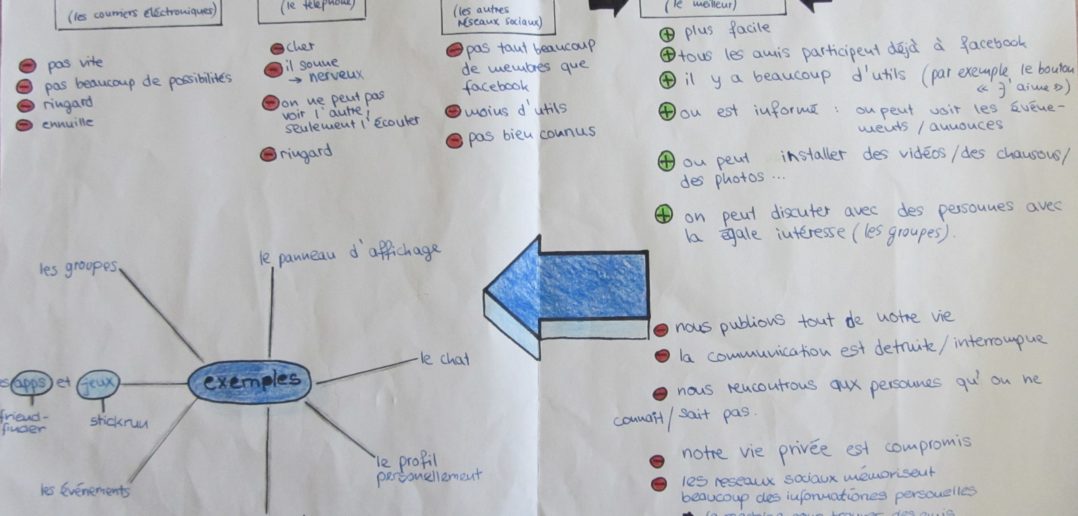 (les courriers électroniques)
pas vite
pas beaucoup de possibilités
ringard
ennuille
(le téléphone)
cher
il sonne
→ nerveux
on ne peut pas
voir l'autre,
seulement l'écouter
ringard
(les autres
réseaux sociaux)
pas tant beaucoup
de membres que
facebook
moins d'utils
pas bien connus
(le meilleur)
plus facile
tous les amis participent déjà à facebook
il y a beaucoup d'utils (par exemple le bouton
« j'aime »)
on est informé : on peut voir les évène-
ments / annonces
on peut installer des vidéos / des chansons /
des photos ...
on peut discuter avec des personnes avec
la égale intéresse (les groupes).
nous publions tout de notre vie
la communication est detruite / interrompue
nous rencontrons aux personnes qu'on ne
connaît / sait pas.
notre vie privée est compromis
les reseaux sociaux mémorisent
beaucoup des informationes personelles
exemples
les groupes
le panneau d'affichage
le chat
le profil
personellement
les événements
apps et jeux
friend-
finder
stickrun